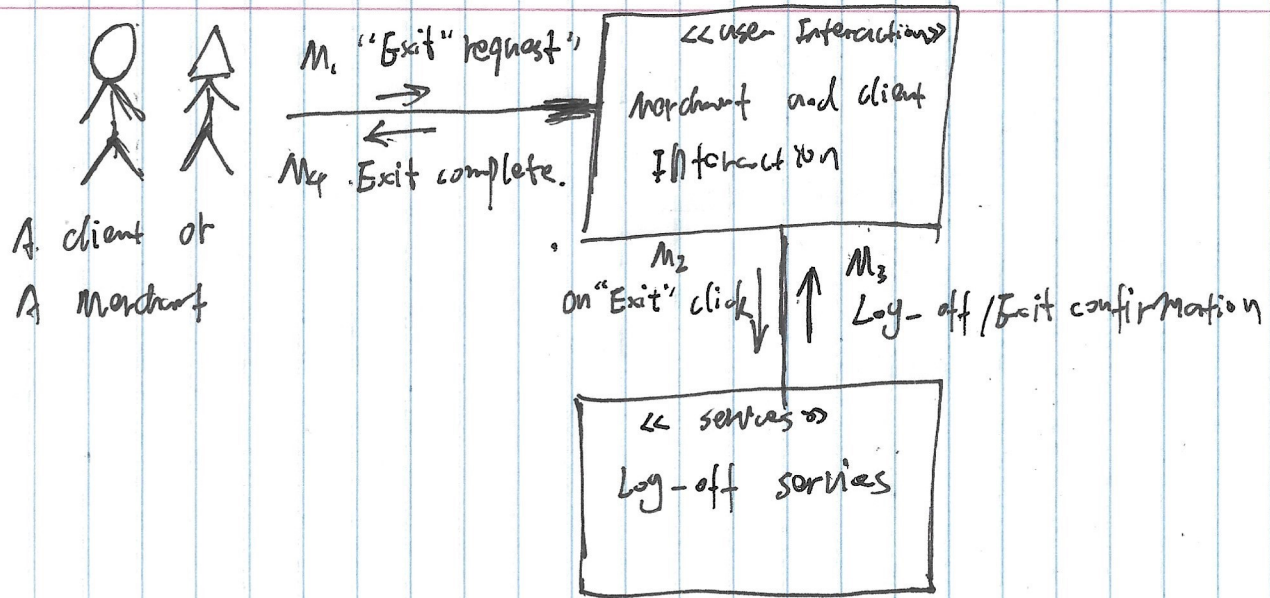 M1 "Exit" request"
M4. Exit complete.
A client or
A Merchant
<<user Interaction>>
Merchant and client
Interaction
M2
on "Exit" click
M3
Log-off/Exit confirmation
<< services >>
Log-off services